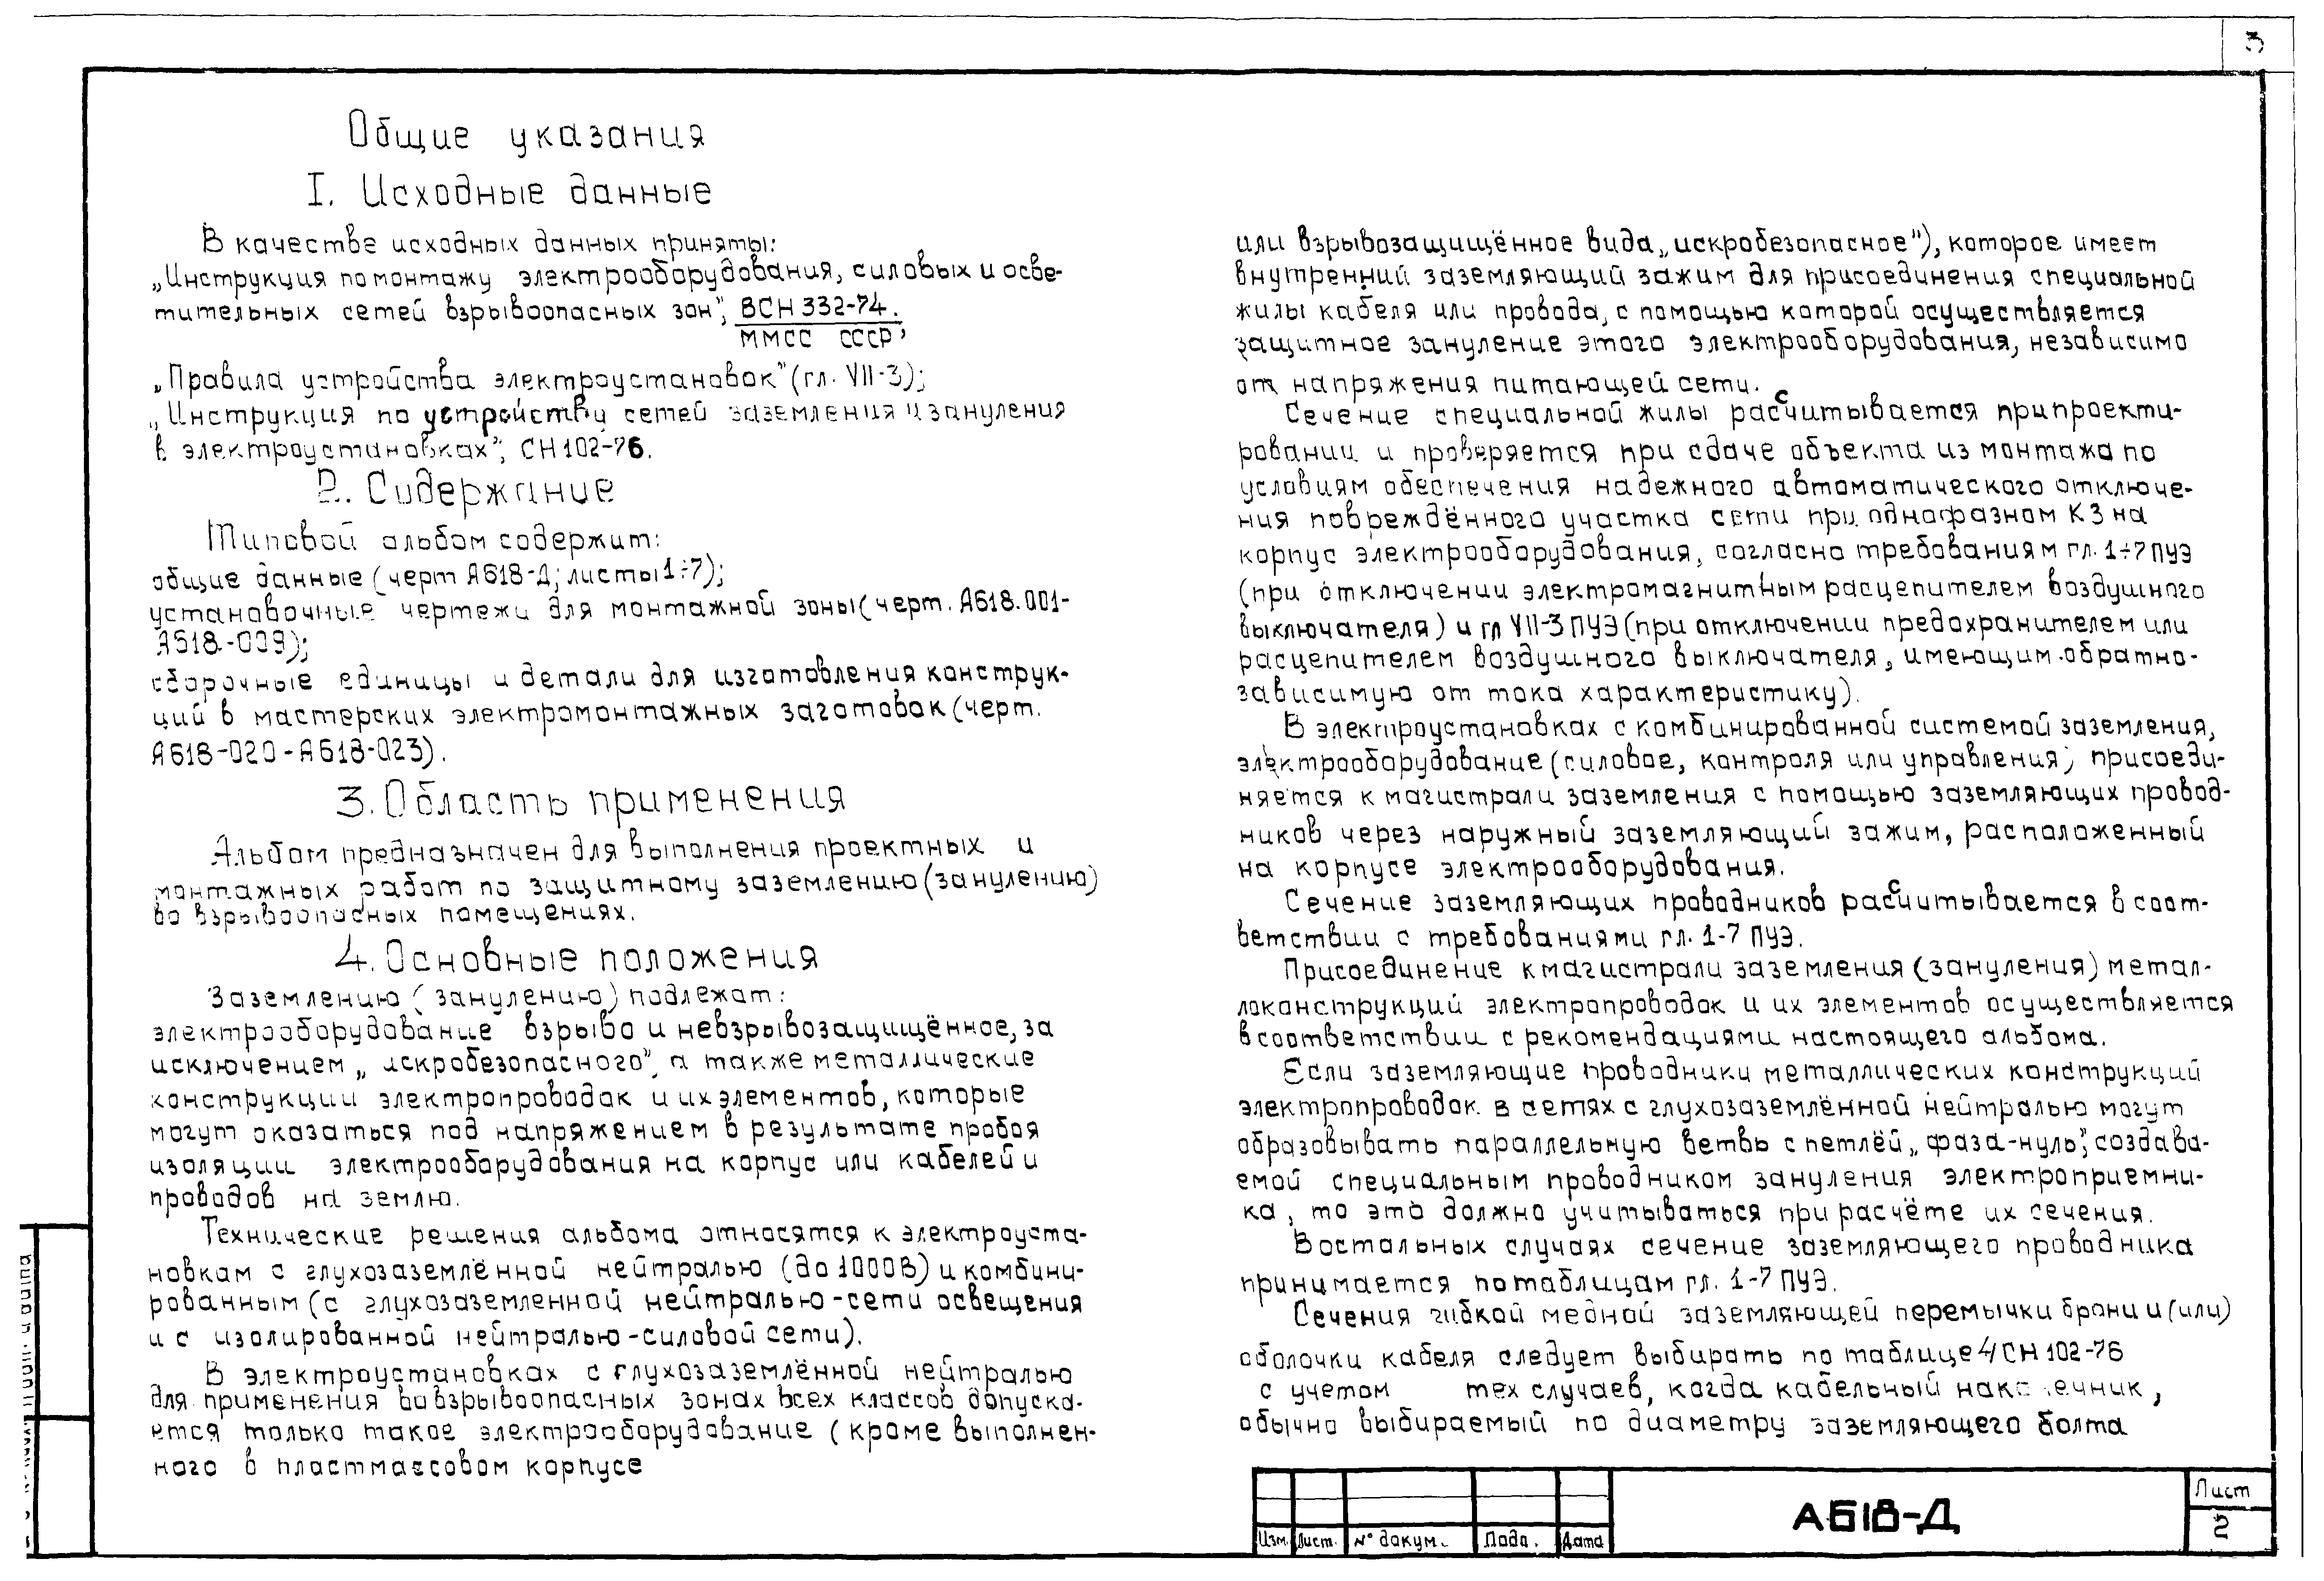 3
Общие указания
I. Исходные данные
В качестве исходных данных приняты:
„Инструкция по монтажу электрооборудования, силовых и осве-
тительных сетей взрывоопасных зон", ВСН 332-74.
ММСС СССР,
„Правила устройства электроустановок" (гл. VII-3);
„Инструкция по устройству сетей заземления и зануления
в электроустановках", СН 102-76.
2. Содержание
Типовой альбом содержит:
общие данные (черт А618-Д; листы 1÷7);
установочные чертежи для монтажной зоны (черт. А618.001-
А618-009);
сборочные единицы и детали для изготовления конструк-
ций в мастерских электромонтажных заготовок (черт.
А618-020 - А618-023).
3. Область применения
Альбом предназначен для выполнения проектных и
монтажных работ по защитному заземлению (занулению)
во взрывоопасных помещениях.
4. Основные положения
Заземлению (занулению) подлежат:
электрооборудование взрыво и невзрывозащищённое, за
исключением „искробезопасного", а также металлические
конструкции электропроводок и их элементов, которые
могут оказаться под напряжением в результате пробоя
изоляции электрооборудования на корпус или кабелей и
проводов на землю.
Технические решения альбома относятся к электроуста-
новкам с глухозаземлённой нейтралью (до 1000В) и комбини-
рованным (с глухозаземленной нейтралью-сети освещения
и с изолированной нейтралью-силовой сети).
В электроустановках с глухозаземлённой нейтралью
для применения во взрывоопасных зонах всех классов допуска-
ется только такое электрооборудование (кроме выполнен-
ного в пластмассовом корпусе
или взрывозащищённое вида „искробезопасное"), которое имеет
внутренний заземляющий зажим для присоединения специальной
жилы кабеля или провода, с помощью которой осуществляется
защитное зануление этого электрооборудования, независимо
от напряжения питающей сети.
Сечение специальной жилы рассчитывается при проекти-
ровании и проверяется при сдаче объекта из монтажа по
условиям обеспечения надежного автоматического отключе-
ния повреждённого участка сети при однофазном КЗ на
корпус электрооборудования, согласно требованиям гл. 1÷7 ПУЭ
(при отключении электромагнитным расцепителем воздушного
выключателя) и гл VII-3 ПУЭ (при отключении предохранителем или
расцепителем воздушного выключателя, имеющим обратно-
зависимую от тока характеристику).
В электроустановках с комбинированной системой заземления,
электрооборудование (силовое, контроля или управления) присоеди-
няется к магистрали заземления с помощью заземляющих провод-
ников через наружный заземляющий зажим, расположенный
на корпусе электрооборудования.
Сечение заземляющих проводников рассчитывается в соот-
ветствии с требованиями гл. 1-7 ПУЭ.
Присоединение к магистрали заземления (зануления) метал-
локонструкций электропроводок и их элементов осуществляется
в соответствии с рекомендациями настоящего альбома.
Если заземляющие проводники металлических конструкций
электропроводок в сетях с глухозаземлённой нейтралью могут
образовывать параллельную ветвь с петлёй „фаза-нуль", создава-
емой специальным проводником зануления электроприемни-
ка, то это должно учитываться при расчёте их сечения.
В остальных случаях сечение заземляющего проводника
принимается по таблицам гл. 1-7 ПУЭ.
Сечения гибкой медной заземляющей перемычки брони и (или)
оболочки кабеля следует выбирать по таблице 4 СН 102-76
с учетом тех случаев, когда кабельный наконечник,
обычно выбираемый по диаметру заземляющего болта
Изм. Лист. № докум. Подп. Дата
А618-Д
Лист
2